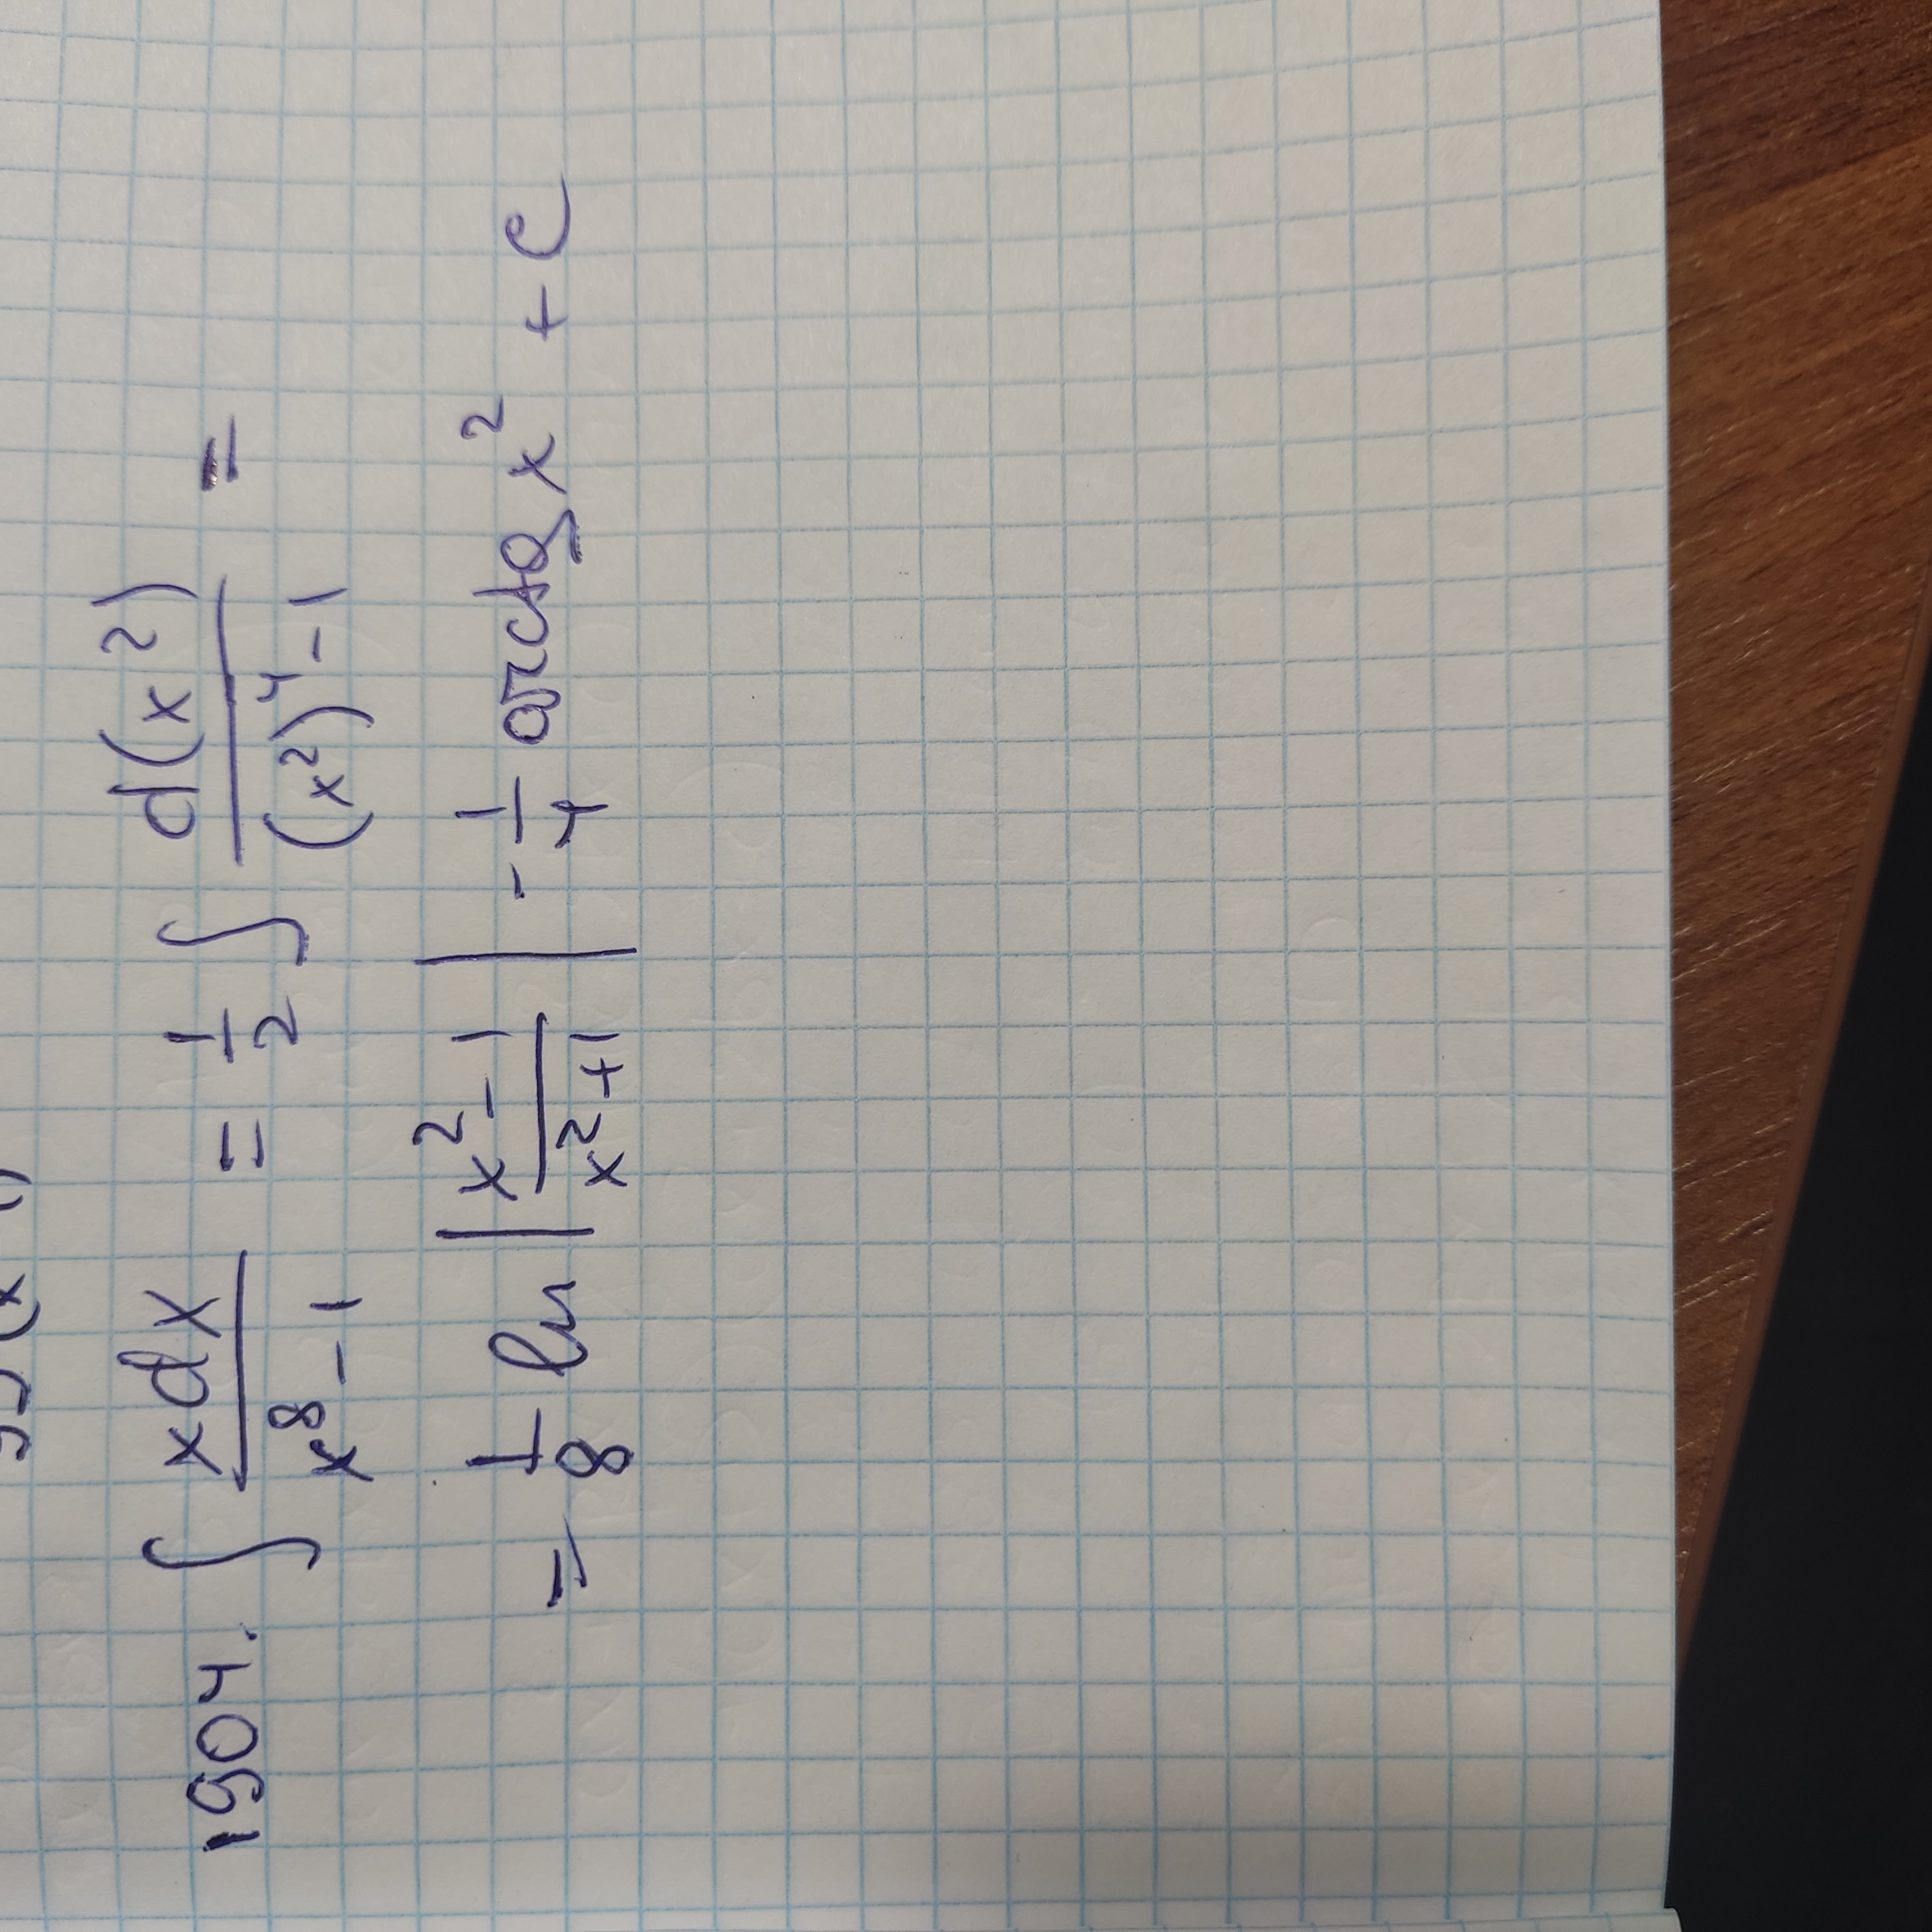 1904. ∫ xdx / (x⁸ - 1) = 1/2 ∫ d(x²) / ((x²)⁴ - 1) =
= 1/8 ln |(x² - 1) / (x² + 1)| - 1/4 arctg x² + C